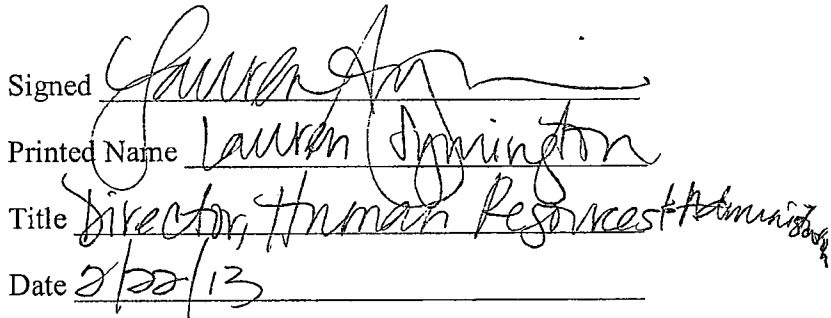 Signed Lauren Symington
Printed Name Lauren Symington
Title Director, Human Resources + Administration
Date 2/22/13